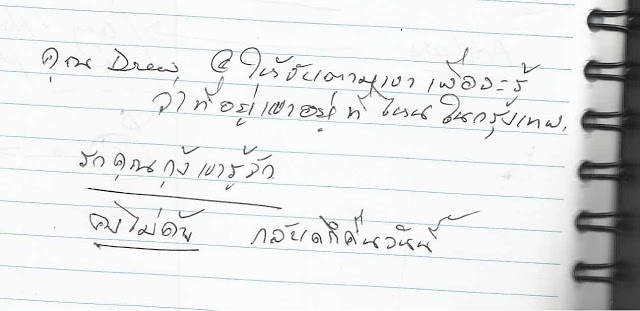 คุณ Drew @ ให้ขับตามเขา เพื่อจะรู้
ว่าที่อยู่เขาอยู่ที่ไหน ในกรุงเทพ.
รถคุณกุ้งเขารู้จัก
คงไม่ดับ กลับดึกคืนวันนี้